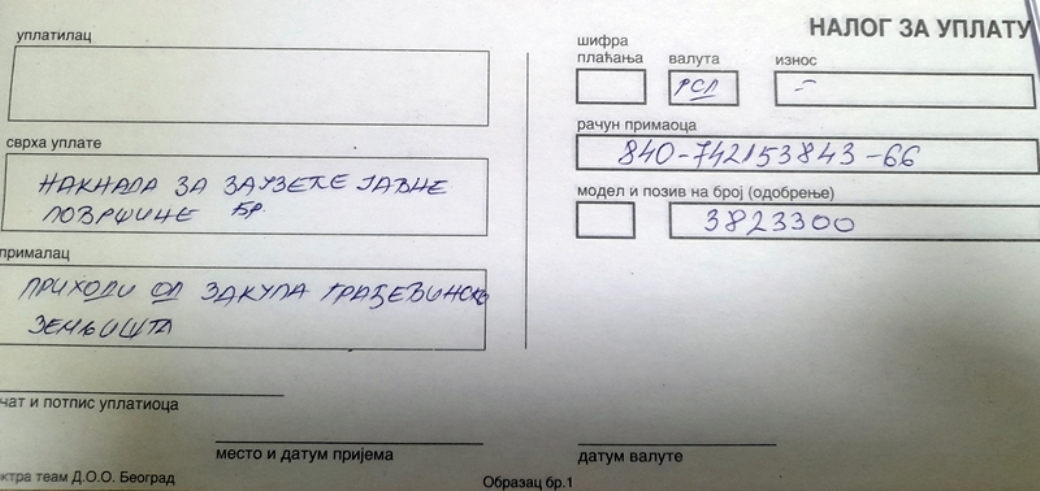 НАЛОГ ЗА УПЛАТУ
уплатилац
сврха уплате
НАКНАДА ЗА ЗАУЗЕЋЕ ЈАВНЕ
ПОВРШИНЕ БР.
прималац
ПРИХОДИ ОД ЗАКУПА ГРАЂЕВИНСКОГ
ЗЕМЉИШТА
чат и потпис уплатиоца
место и датум пријема
ктра теам Д.О.О. Београд
Образац бр.1
шифра
плаћања
валута
РСД
износ
=
рачун примаоца
840-742153843-66
модел и позив на број (одобрење)
3823300
датум валуте